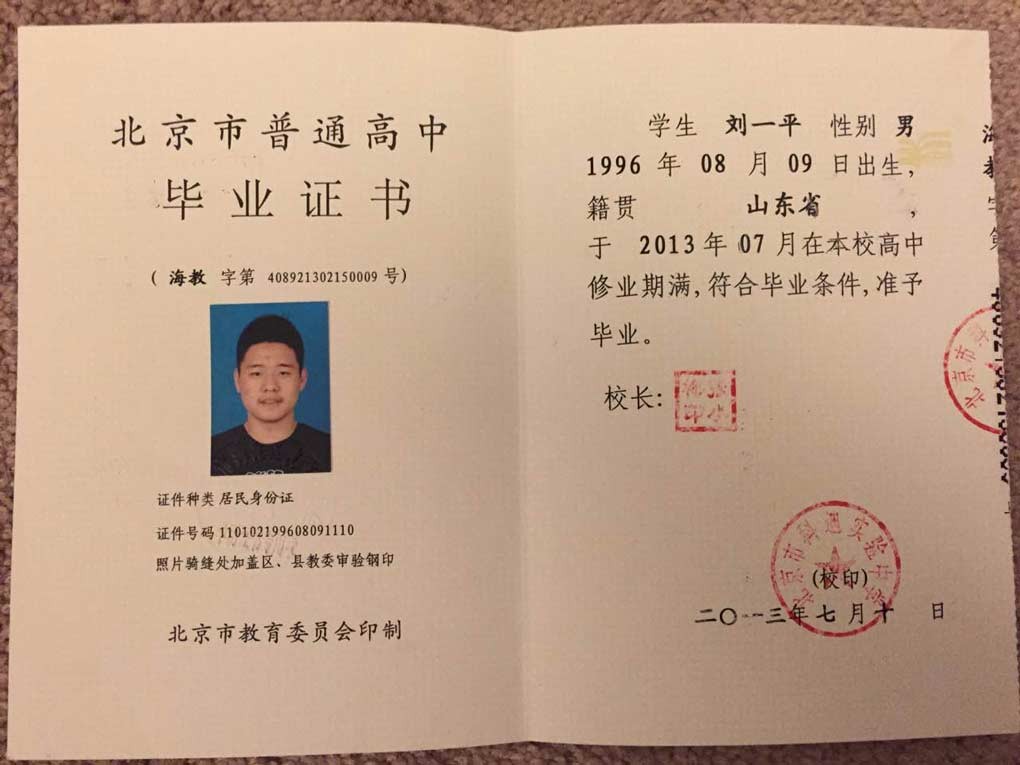 北京市普通高中
毕业证书
(海教 字第 408921302150009 号)
证件种类 居民身份证
证件号码 110102199608091110
照片骑缝处加盖区、县教委审验钢印
北京市教育委员会印制
学生 刘一平 性别 男
1996 年 08 月 09 日出生,
籍贯 山东省 ,
于 2013 年 07 月在本校高中
修业期满,符合毕业条件,准予
毕业。
校长:
北京市科迪实验中学
(校印)
二〇一三年七月十 日
海教字第
北京市科